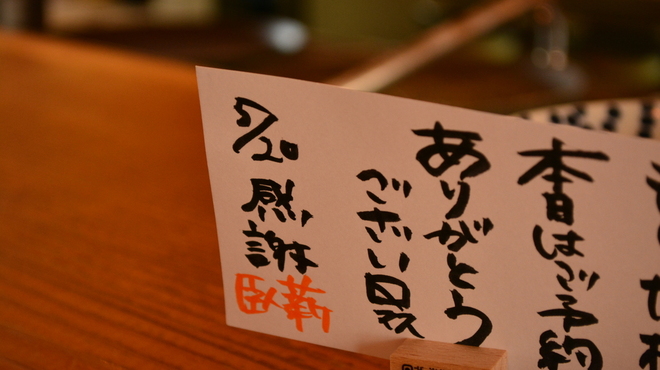 本日はご予約
ありがとう
ございます
5/20 感謝
臥薪